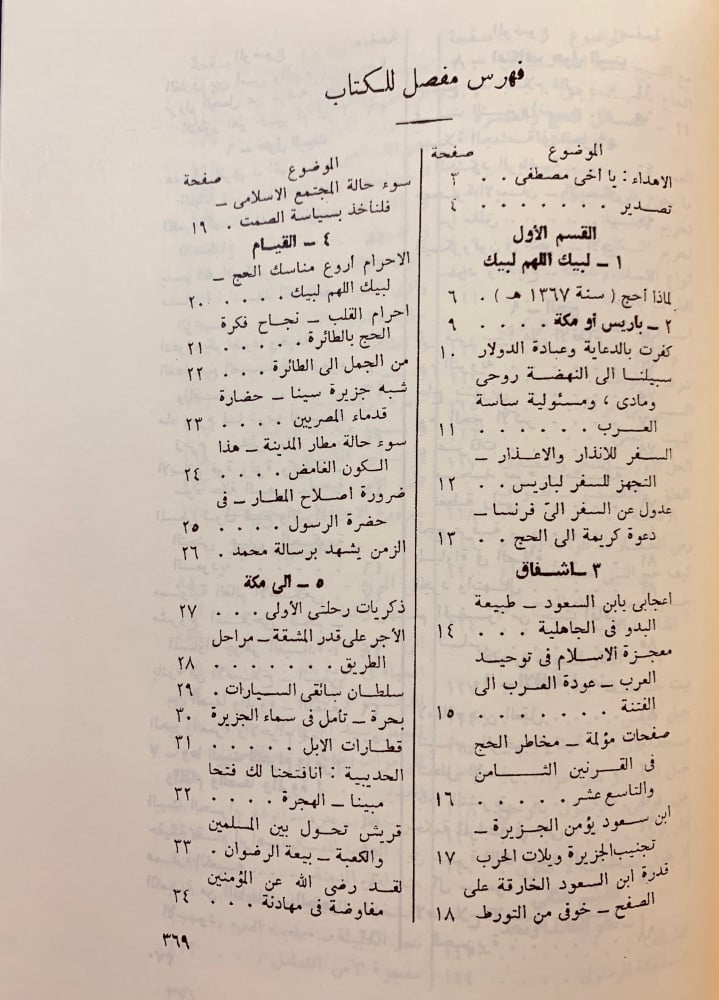 فهرس مفصل للكتاب
الموضوع صفحة
الاهداء : يا أخى مصطفى . . ٣
تصدير . . . . . . . ٤
القسم الأول
١ ــ لبيك اللهم لبيك
لماذا أحج ( سنة ١٣٦٧ هـ ) . ٦
٢ ــ باريس أو مكة . . . . ٩
كفرت بالدعاية وعبادة الدولار ١٠
سبيلنا الى النهضة روحى
ومادى ، ومسئولية ساسة
العرب . . . . . . ١١
السفر للانذار والاعذار ــ
التجهز للسفر لباريس . . ١٢
عدول عن السفر الى فرنسا ــ
دعوة كريمة الى الحج . . ١٣
٣ ــ اشفاق
اعجابى بابن السعود ــ طبيعة
البدو فى الجاهلية . . . ١٤
معجزة الاسلام فى توحيد
العرب ــ عودة العرب الى
الفتنة . . . . . . . ١٥
صفحات مؤلمة ــ مخاطر الحج
فى القرنين الثامن
والتاسع عشر . . . . . ١٦
ابن سعود يؤمن الجزيرة ــ
تجنيب الجزيرة ويلات الحرب ١٧
قدرة ابن السعود الخارقة على
الصفح ــ خوفى من التورط ١٨
الموضوع صفحة
سوء حالة المجتمع الاسلامى ــ
فلنأخذ بسياسة الصمت . ١٩
٤ ــ القيام
الاحرام أروع مناسك الحج ــ
لبيك اللهم لبيك . . . . ٢٠
احرام القلب ــ نجاح فكرة
الحج بالطائرة . . . . . ٢١
من الجمل الى الطائرة . . . ٢٢
شبه جزيرة سينا ــ حضارة
قدماء المصريين . . . . ٢٣
سوء حالة مطار المدينة ــ هذا
الكون الغامض . . . . ٢٤
ضرورة اصلاح المطار ــ فى
حضرة الرسول . . . . ٢٥
الزمن يشهد برسالة محمد . ٢٦
٥ ــ الى مكة
ذكريات رحلتى الأولى . . . ٢٧
الأجر على قدر المشقة ــ مراحل
الطريق . . . . . . . ٢٨
سلطان سائقى السيارات . ٢٩
بحرة ــ تأمل فى سماء الجزيرة ٣٠
قطارات الابل . . . . . ٣١
الحديبية : انافتحنا لك فتحا
مبينا ــ الهجرة . . . . ٣٢
قريش تحول بين المسلمين
والكعبة ــ بيعة الرضوان . ٣٣
لقد رضى الله عن المؤمنين
مفاوضة فى مهادنة . . . ٣٤
٣٦٩